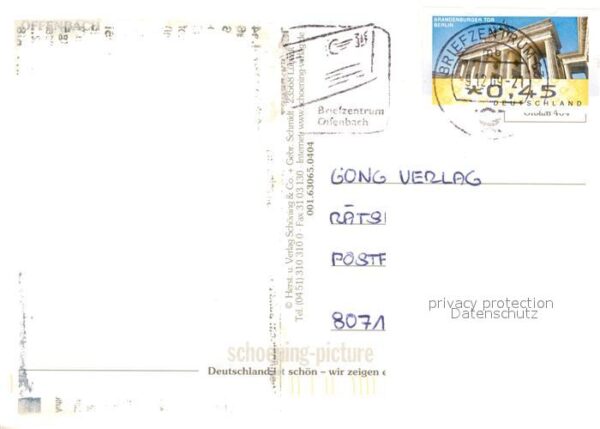 OFFENBACH
Briefzentrum
Offenbach
BRANDENBURGER TOR
BERLIN
BRIEFZENTRUM
*0,45
DEUTSCHLAND
© Herst. u. Verlag Schöning & Co. + Gebr. Schmidt · 23558 Lübeck
Tel. (04 51) 310 310 0 · Fax 31 03 130 · Internet: www.schoening-verlag.de
001.63065.0404
GONG VERLAG
RÄTS
POSTF
8071
privacy protection
Datenschutz
schoening-picture
Deutschland ist schön – wir zeigen e